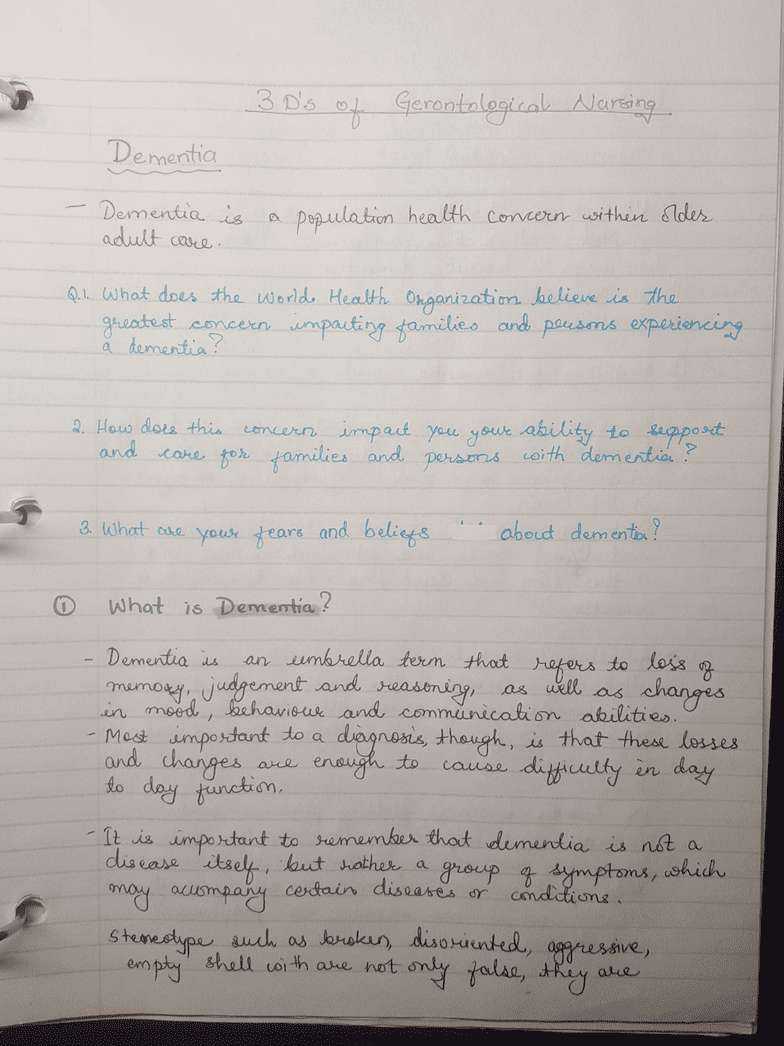 3 D's of Gerontological Nursing
Dementia
- Dementia is a population health concern within older
adult care.
Q.1. What does the World Health Organization believe is the
greatest concern impacting families and persons experiencing
a dementia?
2. How does this concern impact you your ability to support
and care for families and persons with dementia?
3. What are your fears and beliefs about dementia?
① What is Dementia?
- Dementia is an umbrella term that refers to loss of
memory, judgement and reasoning, as well as changes
in mood, behaviour and communication abilities.
- Most important to a diagnosis, though, is that these losses
and changes are enough to cause difficulty in day
to day function.
- It is important to remember that dementia is not a
disease itself, but rather a group of symptoms, which
may accompany certain diseases or conditions.
Stereotype such as broken, disoriented, aggressive,
empty shell with are not only false, they are